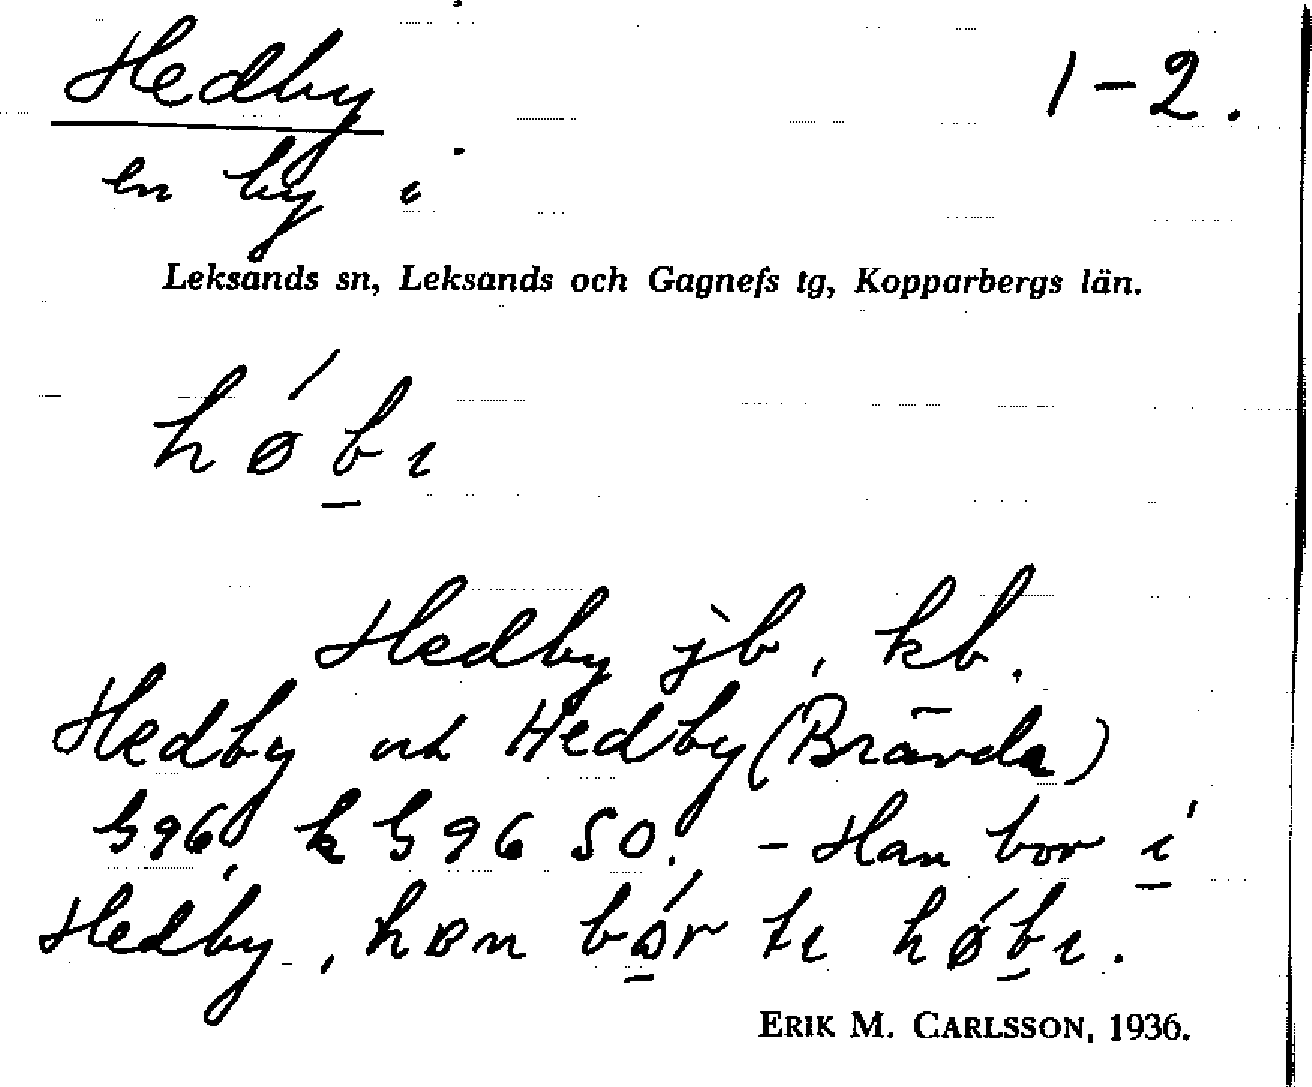 Hedby 1-2.
en by i
Leksands sn, Leksands och Gagnefs tg, Kopparbergs län.
høb̲ı
Hedby jb, kb.
Hedby och Hedby (Brävda)
G96, k G96 SO. - Han bor i̲
Hedby, han bor tı høb̲ı.
ERIK M. CARLSSON, 1936.